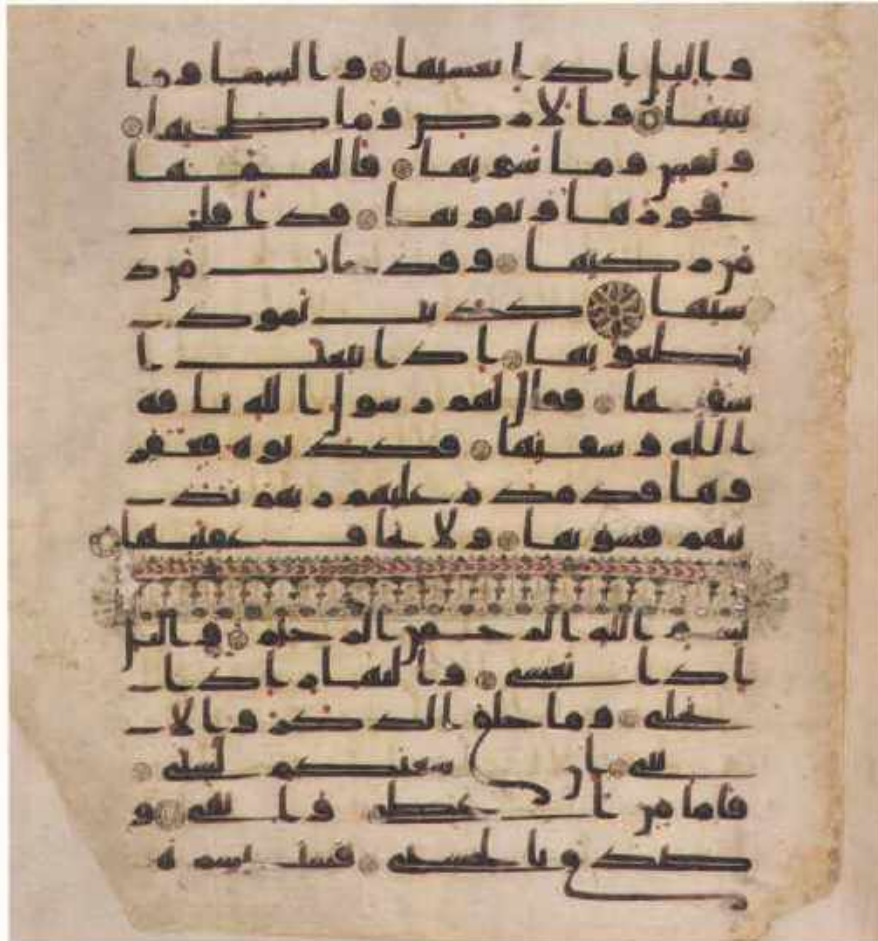 واليل اذا يغشيها والسما وما
بنيها والارض وما طحيها
ونفس وما سويها فالهمها
فجورها وتقويها قد افلح
من زكيها وقد خاب من د
سيها كذبت ثمود
بطغويها اذ انبعث ا
شقيها فقال لهم رسول الله ناقة
الله وسقيها فكذبوه فعقر
وها فدمدم عليهم ربهم بذ
نبهم فسويها ولا يخاف عقبيها
بسم الله الرحمن الرحيم واليل
اذا يغشى والنهار اذا
تجلى وما خلق الذكر والا
نثى ان سعيكم لشتى
فاما من اعطى واتقى و
صدق بالحسنى فسنيسره